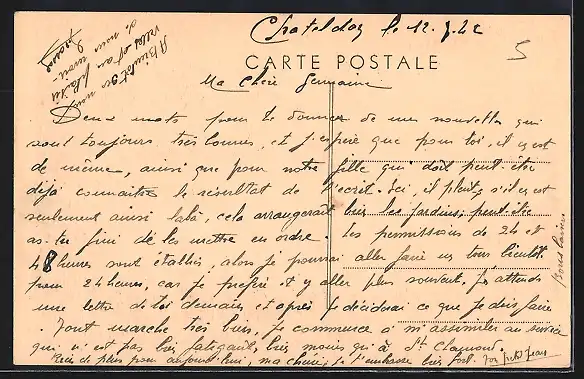 Chateldon le 12.7.42
CARTE POSTALE
5
Ma Chère Germaine
Deux mots pour te donner de mes nouvelles qui
sont toujours très bonnes, et j'espère que pour toi, il en est
de même, ainsi que pour notre fille qui doit peut-être
déjà connaitre le résultat de l'écrit. Ici, il pleut, s'il en est
seulement ainsi là-bà, cela arrangerait bien les jardins, peut-être
as-tu fini de les mettre en ordre. Les permissions de 24 et
48 heures sont établies, alors je pourrai aller faire un tour bientôt.
pour 24 heures, car je préfère y aller plus souvent, j'attends
une lettre de toi demain et après je déciderai ce que je dois faire.
Tout marche très bien, je commence à m'assimiler au service
qui n'est pas bien fatigant, bien moins qu'à St Chamond.
Rien de plus pour aujourd'hui, ma chérie, je t'embrasse bien fort. Ton petit
Bons baisers
A Bientôt
de nous